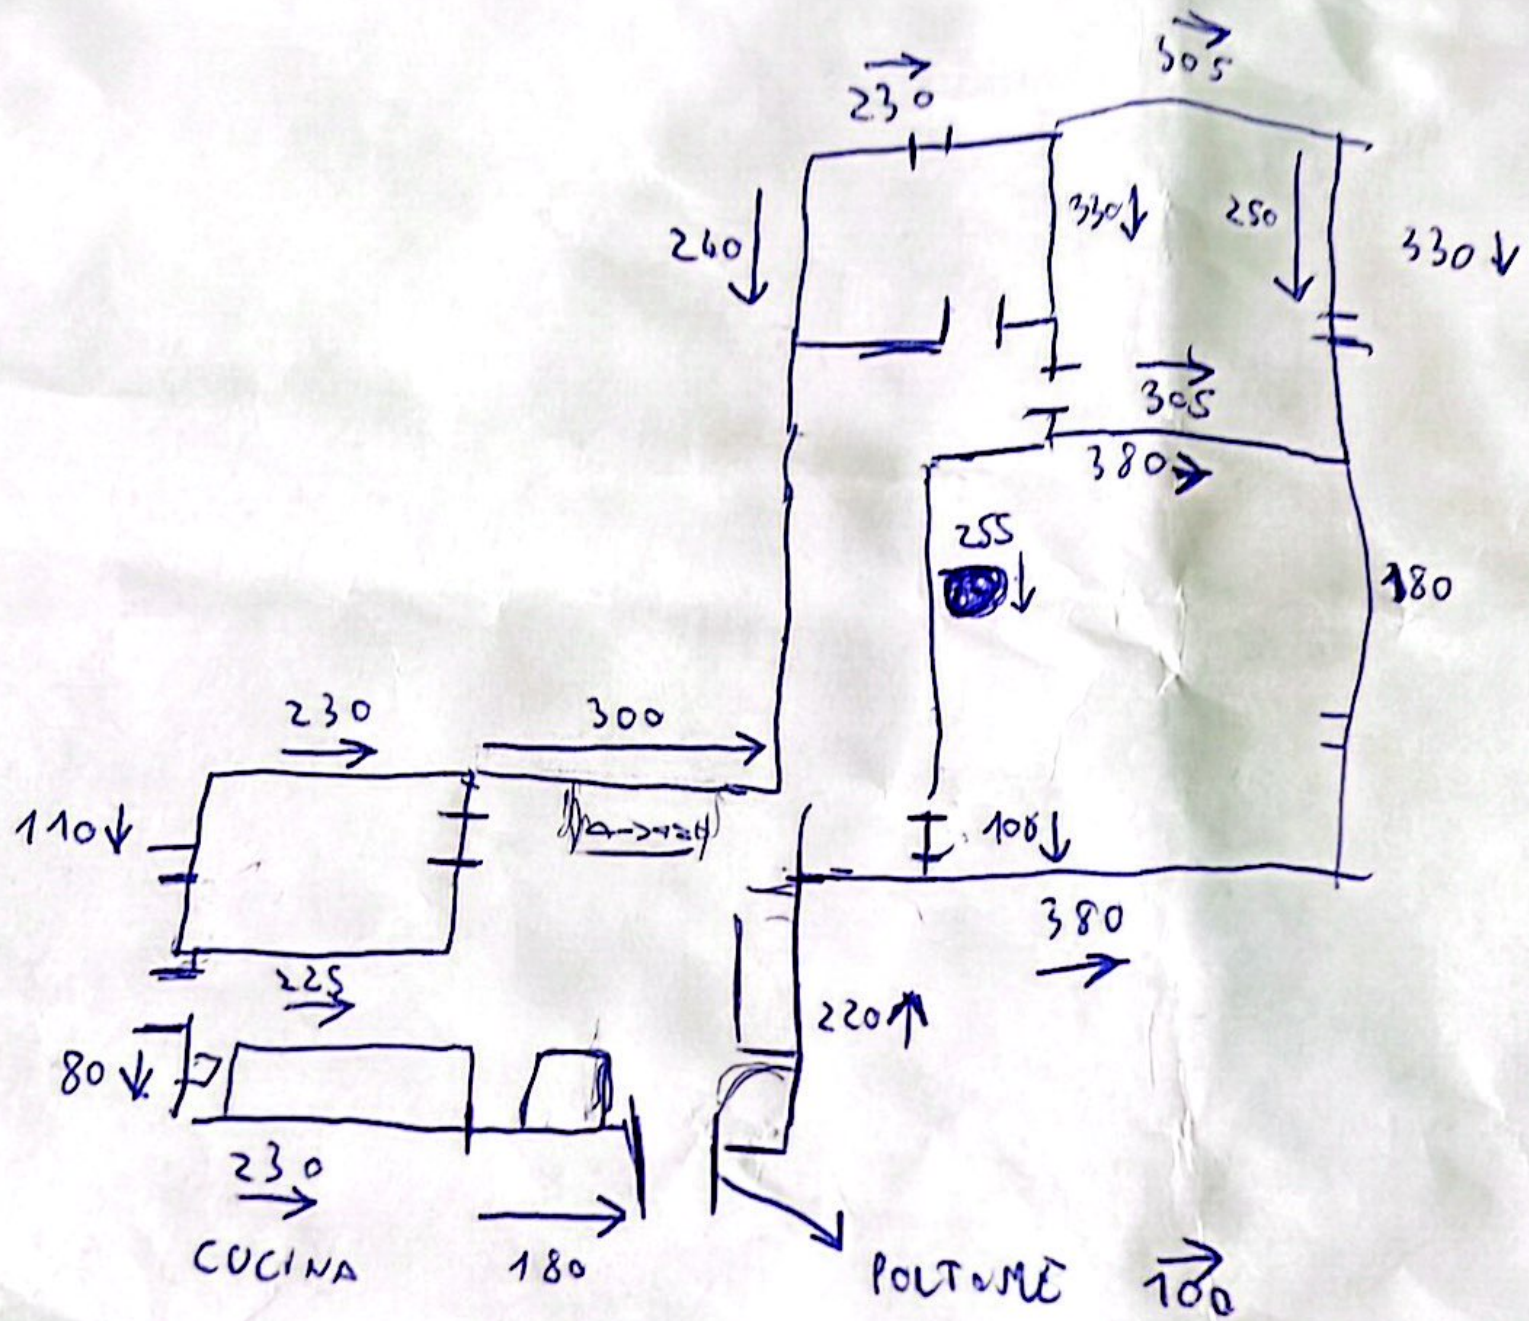 305
230
330
250
240
330
305
380
255
180
230
300
110
100
380
225
220
80
230
CUCINA
180
100